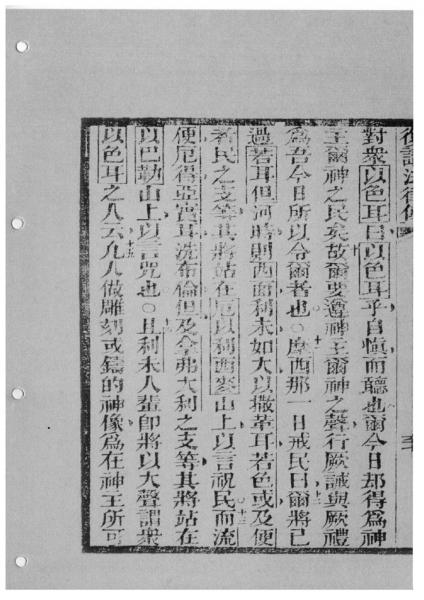 復講法律傳
對衆以色耳曰以色耳乎自慎而聽也爾今日却得爲神
王爾神之民矣故爾要遵神王爾神之聲行厥誡與厥禮
爲吾今日所以令爾者也○摩西那一日戒民曰爾將已
過若耳但河時則西面利未如大以撒革耳若色或及便
者民之支等其將站在厄以利西麥山上以言祝民而流
便厄得亞實耳洗布倫但及全弗大利之支等其將站在
以巴勒山上以言咒也○且利未人輩卽將以大聲謂衆
以色耳之人云凡人做雕刻或鑄的神像爲在神王所可